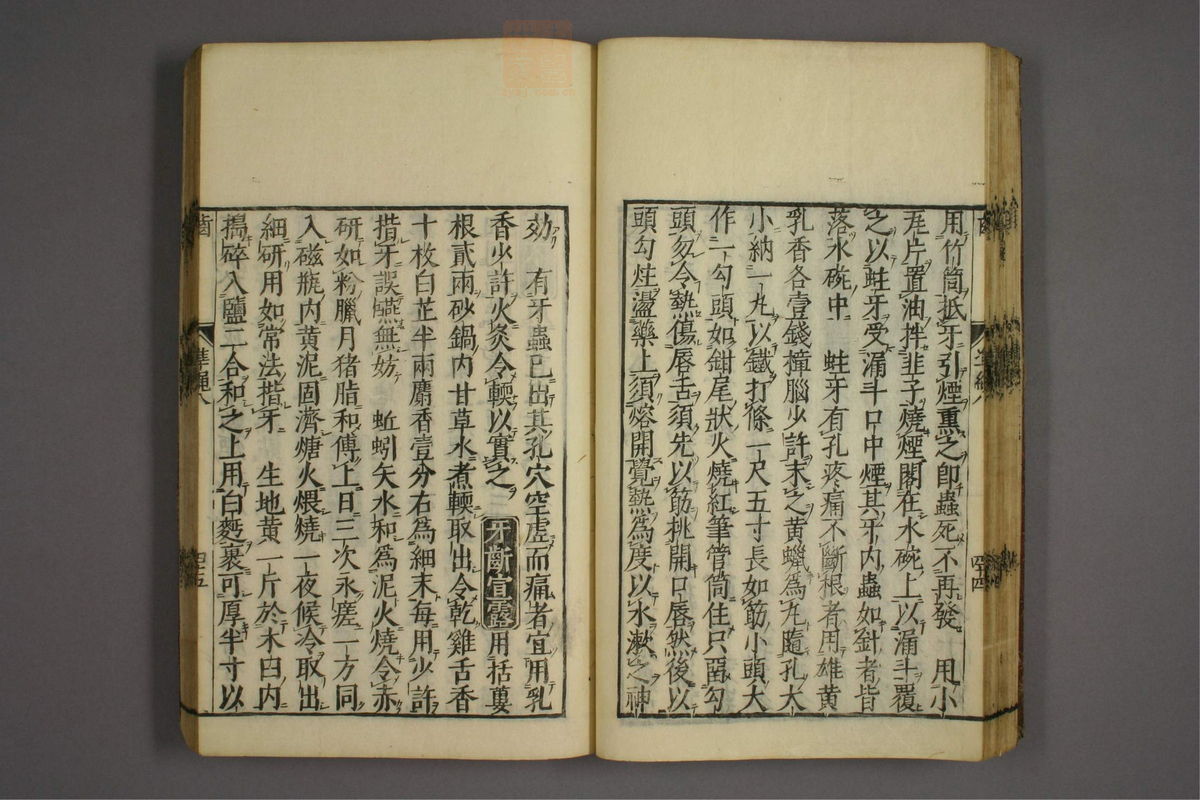 用竹筒抵牙引煙熏之即蟲死不再發　用小
瓦片置油拌韭子燒煙閣在水碗上以漏斗覆
之以蛀牙受漏斗口中煙其牙内蟲如針者皆
落水碗中　蛀牙有孔疼痛不斷根者用雄黄
乳香各壹錢撞腦少許末之黄蠟為丸隨孔大
小納一丸以鐵打條一尺五寸長如筯小頭大
作一勾頭如鉗尾狀火燒紅筆管筒住只留勾
頭勿令熱傷唇舌須先以筋挑開口唇然後以
頭勾炷盪藥上須熔開覺熱為度以水漱之神
効　有牙蟲已出其孔穴空虛而痛者宜用乳
香少許火灸令輭以實之　牙斷宜露　用括蔞
根貳兩砂鍋内甘草水煮輭取出令乾雞舌香
十枚白芷半兩麝香壹分右為細末每用少許
揩牙誤嚥無妨　蚯蚓矢水和為泥火燒令赤
研如粉臘月猪脂和傅上日三次永瘥一方同
入磁瓶内黄泥固濟煻火煨燒一夜候冷取出
細研用如常法揩牙　生地黄一斤於木臼内
搗碎入鹽二合和之上用白麪裹可厚半寸以
齒
準繩八
四五
四四